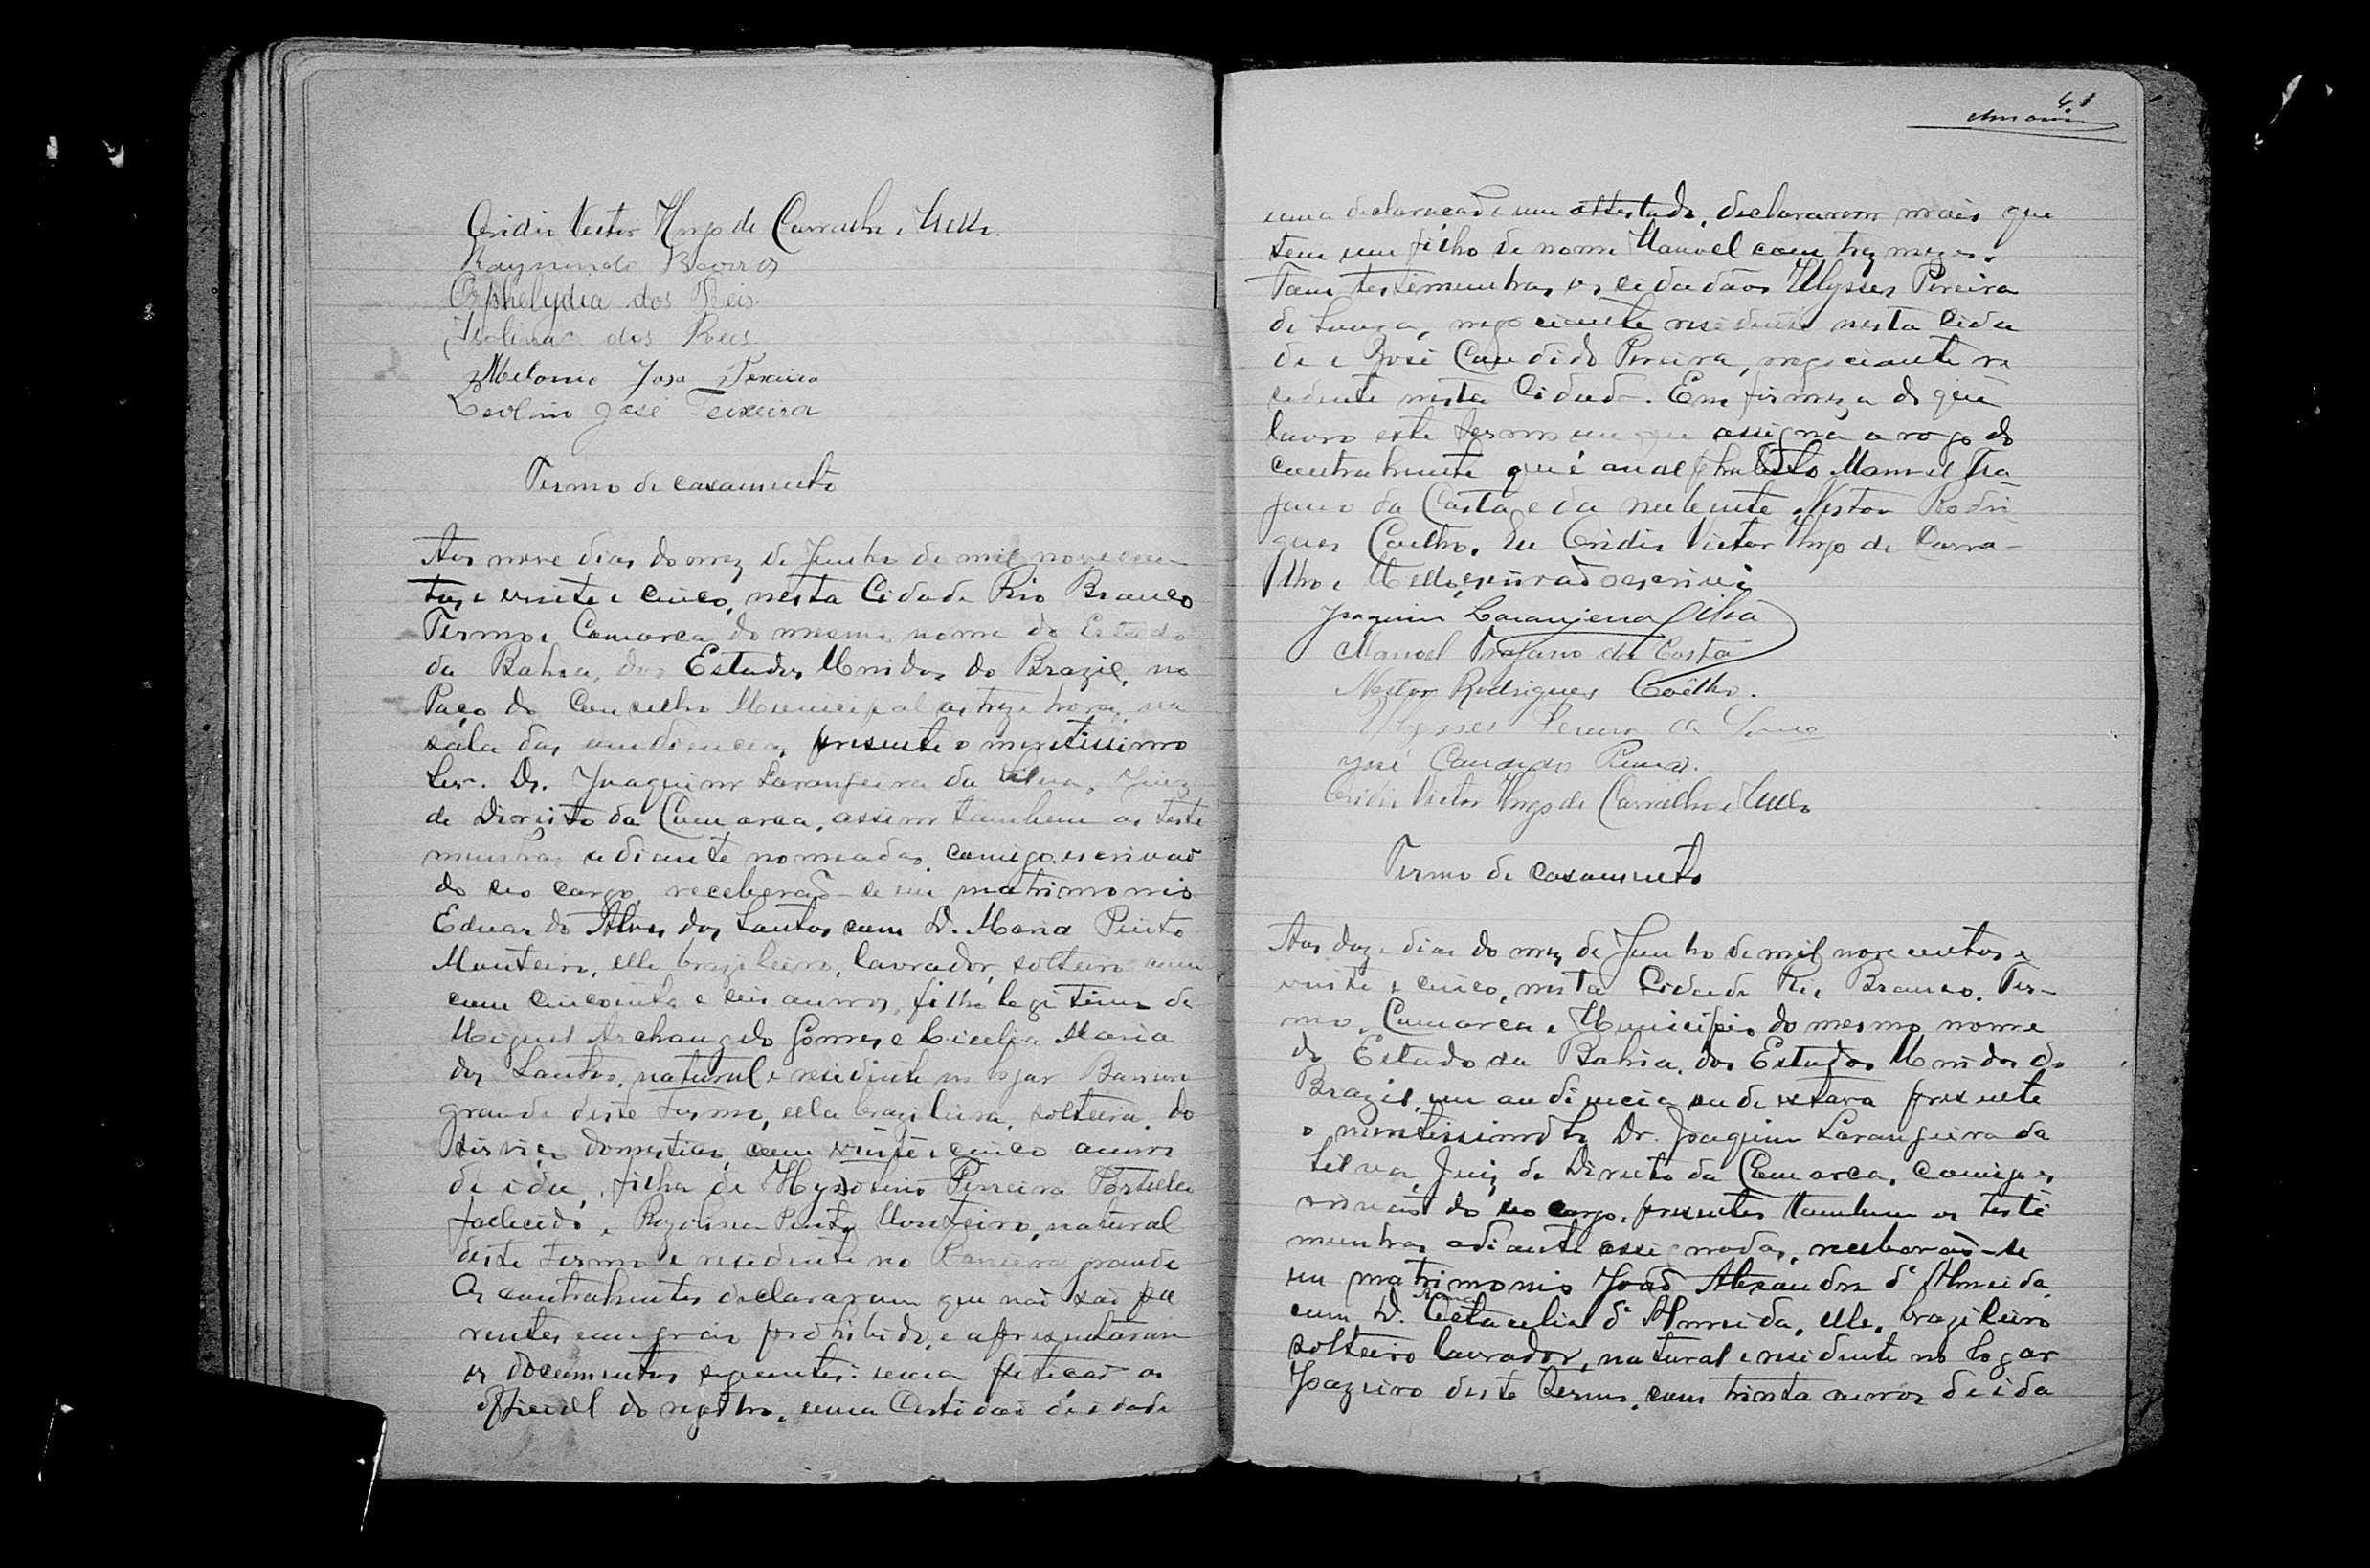 Ceridio Victor Hugo de Carvalho e Mello.
Raymundo Barros
Orphelydia dos Reis
Isolina dos Reis
Antonio José Teixeira
Leolino José Teixeira
Termo de casamento
Aos nove dias do mez de Junho de mil novecen-
tos e vinte e cinco, nesta Cidade Rio Branco
Termo e Comarca do mesmo nome do Estado
da Bahia, dos Estados Unidos do Brazil, no
Paço do Conselho Municipal as treze horas, na
sala das audiencias, presente o meretissimo
Snr. Dr. Joaquim Larangeira da Silva, Juiz
de Direito da Comarca, assim tambem as teste
munhas adiante nomeadas, comigo escrivaõ
do seo cargo, receberaõ-se em matrimonio
Eduardo Alves dos Santos com D. Maria Pinto
Monteiro, elle brazileiro, lavrador, solteiro
com cincoenta e seis annos, filho legitimo de
Miguel Archangelo Gomes e Cicelia Maria
dos Santos, natural e residente no logar
grande deste Termo, ella brazileira, solteira, do
serviço domestico, com vinte e cinco annos
de idade, filha de Pereira
fallecido e Rozolina Pinto Monteiro, natural
deste Termo e residente no grande
Os contrahentes declararam que naõ saõ pa
rentes em gráo prohibido, e apresentaram
os documentos seguintes: uma petiçaõ ao
official do registro, uma Certidaõ de idade
61
uma declaraçaõ e um attestado, declararam mais que
tem um filho de nome Manoel com trez mezes.
Foram testemunhas os cidadãos Ulysses Pereira
de Souza, negociante residente nesta Cida
de e José Candido Pereira, negociante re
sidente nesta Cidade. Em firmeza do que
lavro este termo em que assigna a rogo do
contrahente que é analphabeto Manoel Tra
jano da Costa e da nubente Nestor Rodri
gues Coelho. Eu Ceridio Victor Hugo de Carva-
lho e Mello, escrivaõ o escrivi
Joaquim Laranjeira Silva
Manoel Trajano da Costa
Nestor Rodrigues Coêlho.
Ulysses Pereira de Souza
José Candido Pereira.
Ceridio Victor Hugo de Carvalho e Mello
Termo de casamento
Aos doze dias do mez de Junho de mil novecentos e
vinte e cinco, nesta Cidade Rio Branco, Ter-
mo, Comarca e Municipio do mesmo nome
do Estado da Bahia, dos Estados Unidos do
Brazil, em audiencia onde estava presente
o meretissimo Sr. Dr. Joaquim Larangeira da
Silva, Juiz de Direito da Comarca, comigo es
crivaõ do seo cargo, presentes tambem as teste
munhas adiante assignadas, receberaõ-se
em matrimonio Joaõ Alexandre d'Almeida
com D. Octacelia d'Almeida, elle, brazileiro
solteiro lavrador, natural e residente no logar
Joazeiro deste Termo, com trinta annos de ida